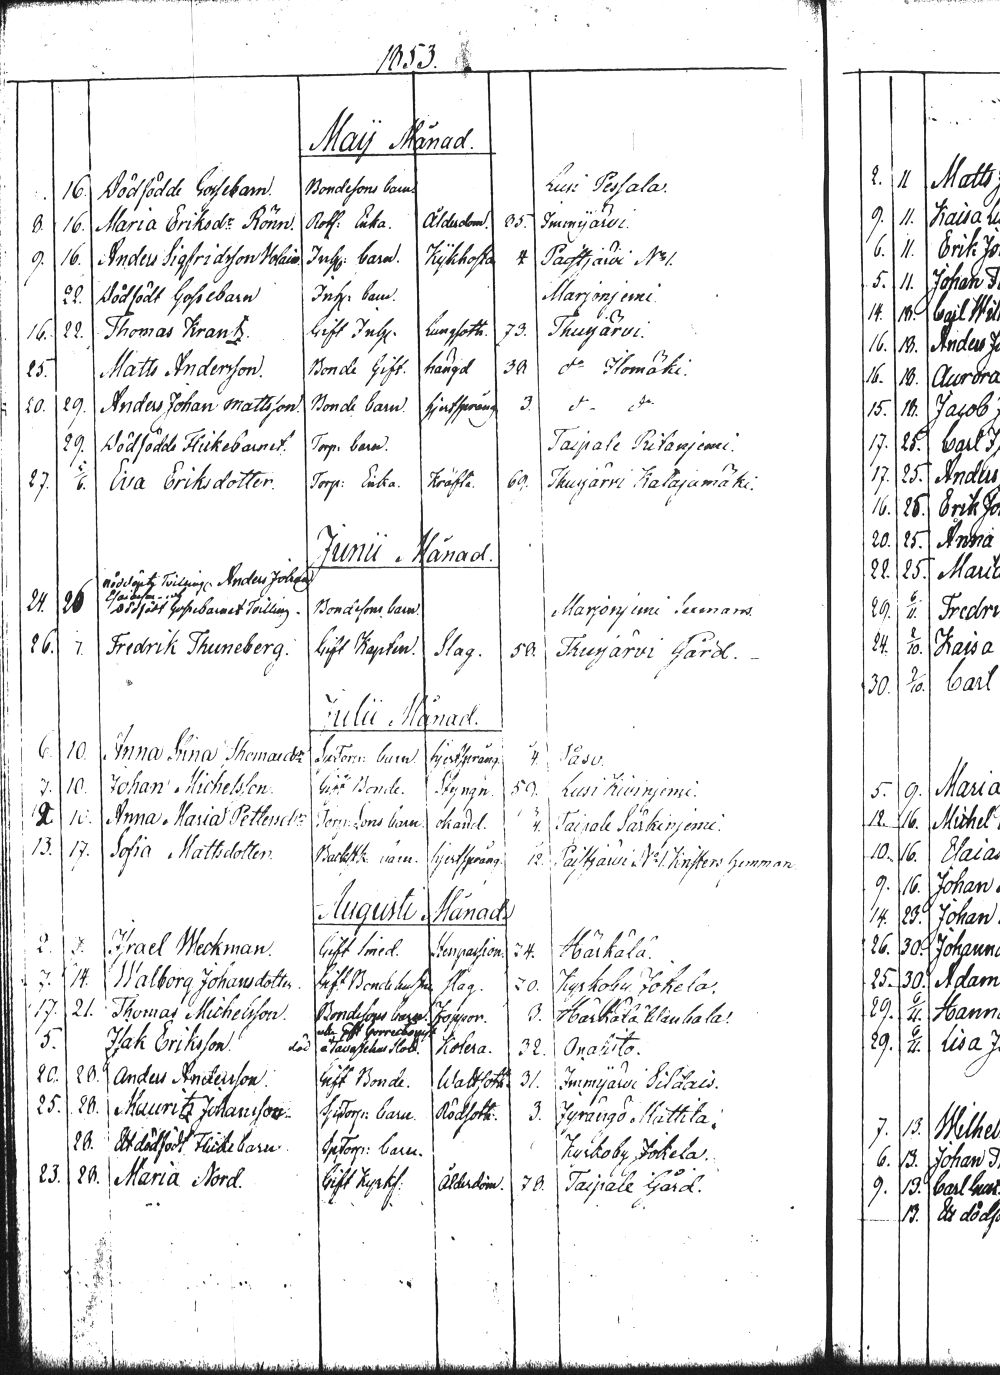 1853.
Maij Månad.
16. Dödfödde Gossebarn. Bondesons barn. Lusi Pessala.
8. 16. Maria Eriksdr Rönn. Rotf: Enka. Ålderdom. 85. Immijärvi.
9. 16. Anders Sigfridsson Inhs: barn. Kikhosta 4 Paistjärvi No 1.
22. Dödfödt Gossebarn Inhs: barn. Marjonjemi.
16. 22. Thomas Krantz. Gift Inhs. Lungsoth. 73. Thusjärvi.
25. Matts Andersson. Bonde Gift. hängd 38 do Ilomäki.
20. 29. Anders Johan Mattsson Bonde barn. hjertsprång 3. do do
29. Dödfödde Flickebarnet. Torp: barn. Taipale Pitkänjemi.
27. 5/6. Eva Eriksdotter. Torp: Enka. Kräfta. 69. Thusjärvi Katajamäki.
Junii Månad.
nöddöpt Tvilling Anders Johan
24. 26 Dödfödt Gossebarnet Tvilling. Bondesons barn. Marjonjemi
26. 7. Fredrik Thuneberg. Gift Kapten. Slag. 58. Thusjärvi Gård.
Julii Månad.
6. 10. Anna Stina Thomasdr Torp: barn hjertsprång 4.
7. 10. Johan Michelsson. Gift Bonde. Styngn. 59. Lusi Kivinjemi.
Anna Maria Pettersdr Torp: Sons barn okänd. Taipale Särkinjemi.
13. 17. Sofia Mattsdotter. Backstk barn. hjertsprång 12. Paistjärvi No 1. Knifters hemman
Augusti Månad.
2. 7. Israel Weckman. Gift Smed. Stenpassion. 74. Härkälä.
7. 14. Walborg Johansdotter. Gift Bondehustru Slag. 70. Kyrkoby Jokela.
17. 21. Thomas Michelsson. Bondesons barn. Koppor. 3. Härkälä Ylänhala.
5. Isak Eriksson. död å Tavastehus Slott. Kolera. 32. Onalisto.
20. 28. Anders Andersson. Gift Bonde. Wattsoth 31. Immijärvi Sildais.
25. 28. Mauritz Johansson. Torp: barn. Rödsoth. 3. Jyrängö Mattila.
28. Ett dödfödt Flickebarn Torp: barn. Kyrkoby Jokela.
23. 28. Maria Nord. Gift Kyrkf. Ålderdom. 78. Taipale Gård.
2. 11 Matts
9. 11. Kaisa
6. 11. Erik
5. 11. Johan
14. 18. Carl
16. 18. Anders
16. 18. Aurora
15. 18. Jacob
17. 25. Carl
17. 25. Anders
16. 25. Erik
20. 25. Anna
22. 25. Maria
29. Fredri
24. 2/10. Kaisa
30. 2/10. Carl
5. 9. Maria
12. 16. Michel
10. 16. Elaias
9. 16. Johan
14. 23. Johan
26. 30. Johanna
25. 30. Adam
29. Hanna
29. Lisa
7. 13. Wilhel
6. 13. Johan
9. 13. Carl Gust.
13. Ett dödf